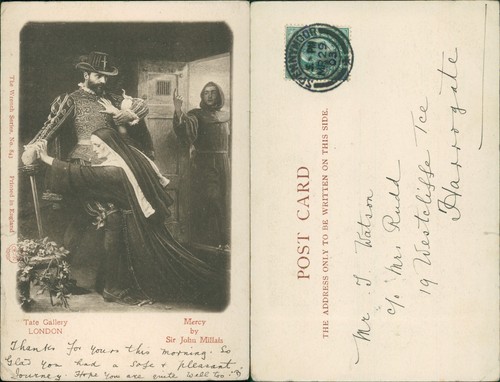 The Wrench Series, No. 843 Printed in England
Tate Gallery
LONDON
Mercy
by
Sir John Millais
Thanks for yours this morning. So
Glad you had a safe & pleasant
Journey. Hope you are quite well too.
POST CARD
THE ADDRESS ONLY TO BE WRITTEN ON THIS SIDE.
SPENNYMOOR
29
03
Mr. T Watson
c/o Mrs Rudd
19 Westcliffe Tce
Harrogate